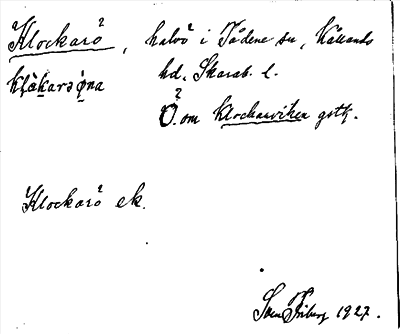 Klockarö, halvö i Tådene sn, Kållands
hd. Skarab. l.
Ö. om Klockarviken gstk.
Klockarö ek.
Sven Friberg 1927.